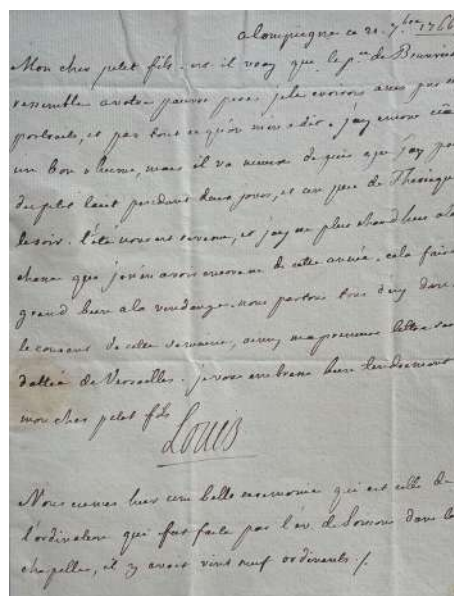 a Compiegne ce 21. 7bre 1766
Mon cher petit fils. est il vray que le pce de Brunsvic
ressemble a votre pauvre pere, je le croirois assés par
portraits, et par tout ce qu'on m'en a dit. j'ay encore
un bon rhume, mais il va mieux depuis que j'ay pris
du petit lait pendant deux jours, et un peu de Theriaque
le soir. l'été nous est revenu, et j'ay eu plus chaud hier a la
chasse que je n'en avois encore eu de cette année. cela faisoit
grand bien a la vendange. nous partons tous d'icy dans
le courant de cette semaine, ainsy ma premiere lettre sera
dattée de Versailles. je vous embrasse bien tendrement
mon cher petit fils
Louis
Nous eumes hier une belle ceremonie qui est celle de
l'ordination qui fut faite par l'ev. de Soissons dans la
chapelle, il y avoit vint neuf ordinants /.